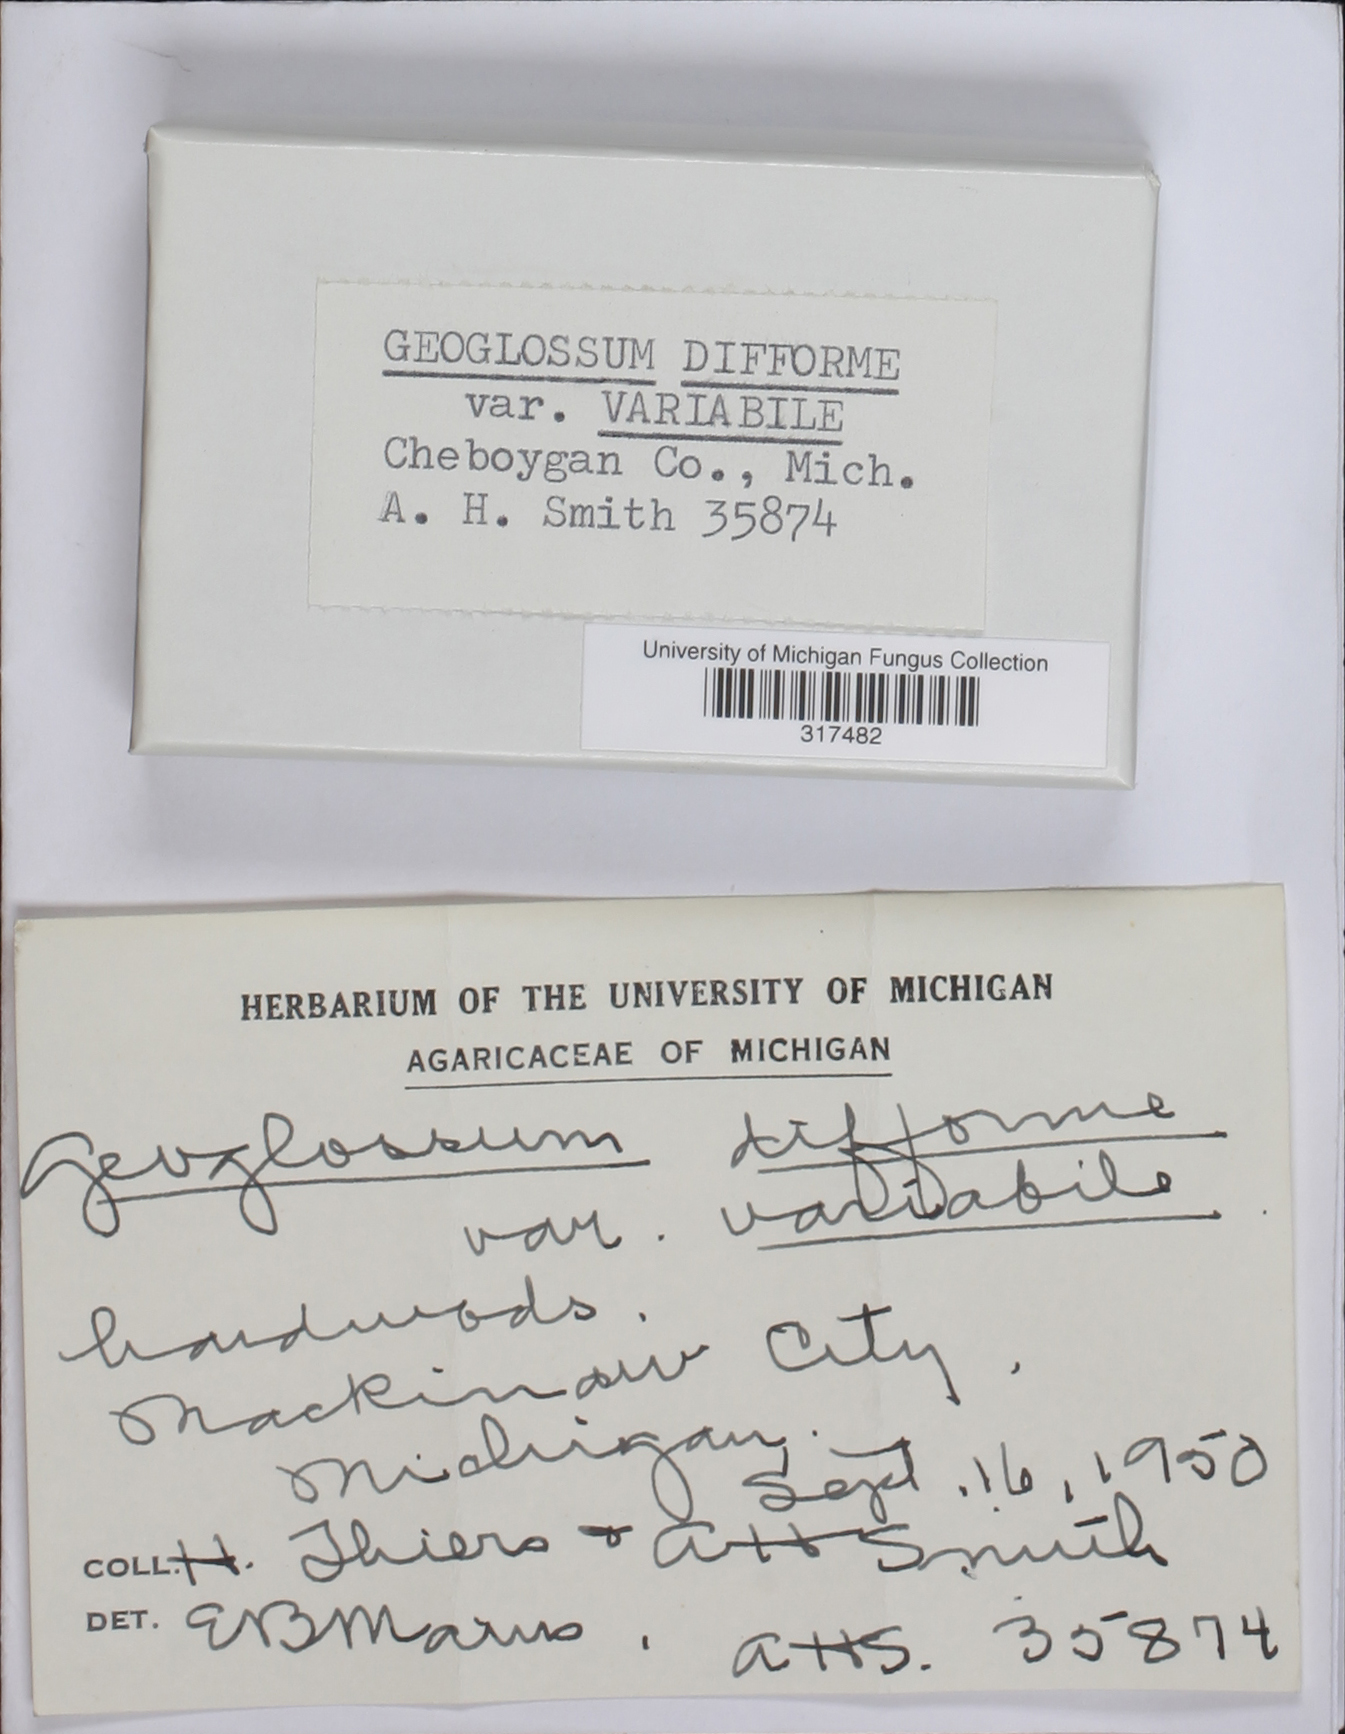 GEOGLOSSUM DIFFORME
var. VARIABILE
Cheboygan Co., Mich.
A. H. Smith 35874
University of Michigan Fungus Collection
317482
HERBARIUM OF THE UNIVERSITY OF MICHIGAN
AGARICACEAE OF MICHIGAN
Geoglossum difforme
var. variabile.
hardwods.
Mackinaw City,
Michigan.
Sept. 16, 1950
COLL. H. Thiers & AH Smith
DET. EB Mains. AHS. 35874